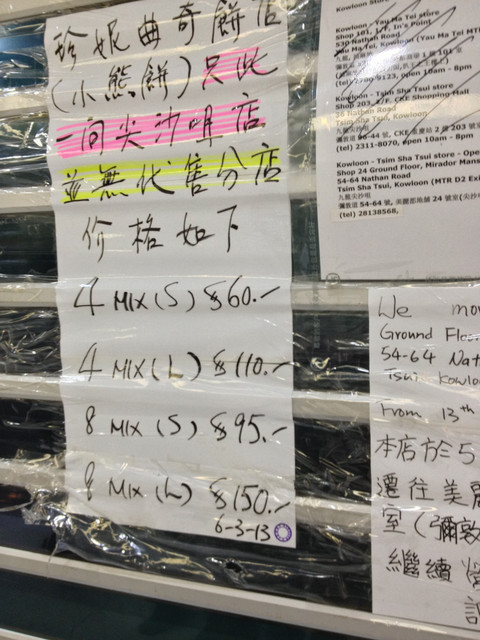 珍妮曲奇餅店
(小熊餅)只此
一间尖沙咀店
並無代售分店
价格如下
4 MIX (S) $60.-
4 MIX (L) $110.-
8 MIX (S) $95.-
8 MIX (L) $150.-
6-3-13
Kowloon Store
Kowloon - Yau Ma Tei Store
Shop 101, 1/F, In's Point
530 Nathan Road
Yau Ma Tei, Kowloon (Yau Ma Tei MTR
open 10am - 8pm
Kowloon - Tsim Sha Tsui store
Shop 203, 2/F, CKE Shopping Mall
Nathan Road
Tsim Sha Tsui, Kowloon
(tel) 2311-8070, open 10am - 8pm
Kowloon - Tsim Sha Tsui store - Ope
Shop 24 Ground Floor, Mirador Mans
54-64 Nathan Road
Tsim Sha Tsui, Kowloon (MTR D2 Exi
九龍尖沙咀
(tel) 28138568,
We mov
Ground Floo
54-64 Nat
Tsui Kowlo
From 13th
本店於5
遷往美麗
室(彌敦
繼續營